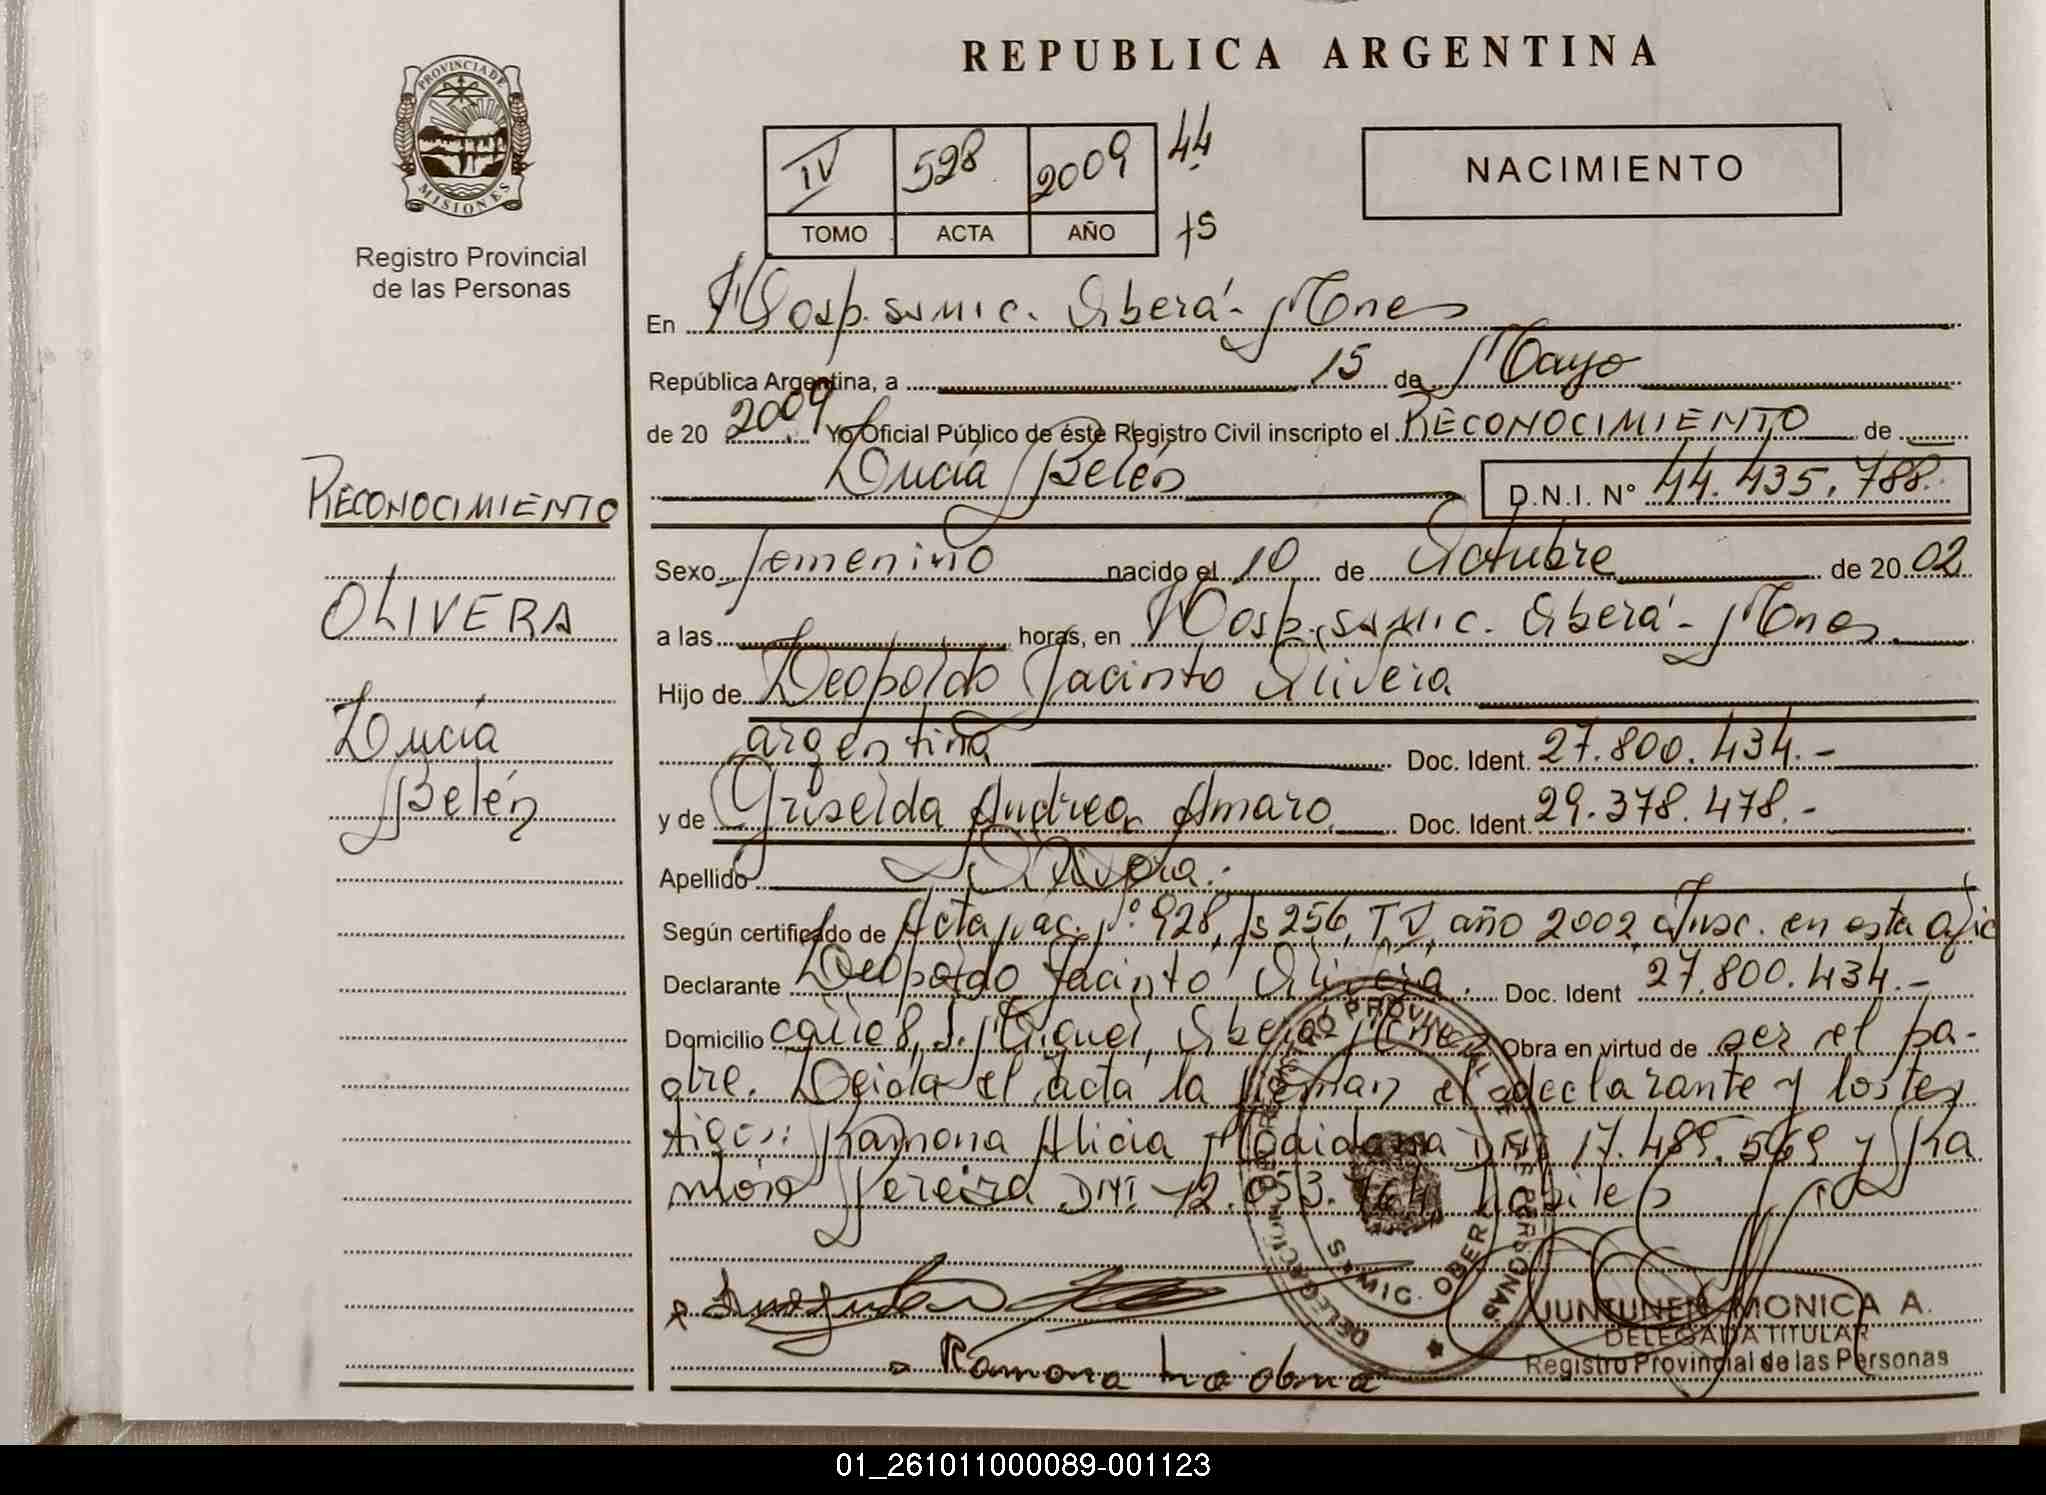 REPUBLICA ARGENTINA
PROVINCIA DE
MISIONES
Registro Provincial
de las Personas
IV 528 2009 44
TOMO ACTA AÑO 15
NACIMIENTO
En Hosp. SAMIC. Oberá - Mnes
República Argentina, a 15 de Mayo
de 20 2009 Yo Oficial Público de éste Registro Civil inscripto el RECONOCIMIENTO de
Lucía Belén D.N.I. N° 44.435.788
RECONOCIMIENTO
OLIVERA
Lucía
Belén
Sexo femenino nacido el 10 de Octubre de 20 02
a las horas, en Hosp. SAMIC. Oberá - Mnes
Hijo de Leopoldo Jacinto Olivera
argentina Doc. Ident. 27.800.434.-
y de Griselda Andrea Amaro Doc. Ident. 29.378.478.-
Apellido Olivera.
Según certificado de Acta nac. N° 928, fs 256, T V, año 2002, Insc. en esta ofic
Declarante Leopoldo Jacinto Olivera. Doc. Ident 27.800.434.-
Domicilio calle 8, S. Miguel, Oberá - Mnes Obra en virtud de ser el pa-
dre. Leída el acta la firman el declarante y los tes
tigos: Ramona Alicia Maidana DNI 17.489.569 y Ra
món Pereira DNI 12.053.764, hábiles
Ramona
DELEGACION REGISTRO PROVINCIAL DE LAS PERSONAS
SAMIC. OBERA
JUNTUNEN MONICA A.
DELEGADA TITULAR
Registro Provincial de las Personas
01_261011000089-001123